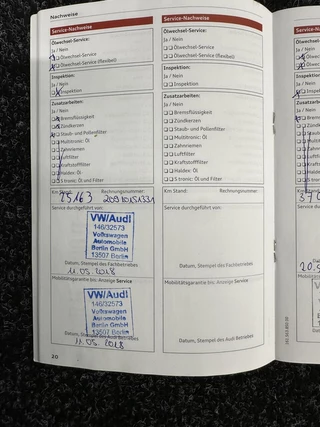 Nachweise
Service-Nachweise
Ölwechsel-Service:
Ja / Nein
Ölwechsel-Service
Ölwechsel-Service (flexibel)
Inspektion:
Ja / Nein
Inspektion
Zusatzarbeiten:
Ja / Nein
Bremsflüssigkeit
Zündkerzen
Staub- und Pollenfilter
Multitronic: Öl
Zahnriemen
Luftfilter
Kraftstofffilter
Haldex: Öl
S tronic: Öl und Filter
Km Stand: Rechnungsnummer:
25163
Service durchgeführt von:
VW/Audi
146/32573
Volkswagen
Automobile
Berlin GmbH
13507 Berlin
Datum, Stempel des Fachbetriebes
11.05.2018
Mobilitätsgarantie bis: Anzeige Service
VW/Audi
146/32573
Volkswagen
Automobile
Berlin GmbH
13507 Berlin
Datum, Stempel des Audi Betriebes
11.05.2018
20
Service-Nachweise
Ölwechsel-Service:
Ja / Nein
Ölwechsel-Service
Ölwechsel-Service (flexibel)
Inspektion:
Ja / Nein
Inspektion
Zusatzarbeiten:
Ja / Nein
Bremsflüssigkeit
Zündkerzen
Staub- und Pollenfilter
Multitronic: Öl
Zahnriemen
Luftfilter
Kraftstofffilter
Haldex: Öl
S tronic: Öl und Filter
Km Stand: Rechnungsnummer:
Service durchgeführt von:
Datum, Stempel des Fachbetriebes
Mobilitätsgarantie bis: Anzeige Service
Datum, Stempel des Audi Betriebes